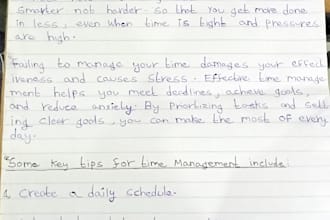 smarter not harder - so that you get more done
in less, even when time is tight and pressures
are high.
Failing to manage your time damages your effect
iveness and causes stress. Effective time manage
ment helps you meet dedlines, achieve goals,
and reduce anxiety. By Prortizing tasks and sett
ing clear goals, you can make the most of every
day.
Some key tips for time Management include:
1. Create a daily schedule.